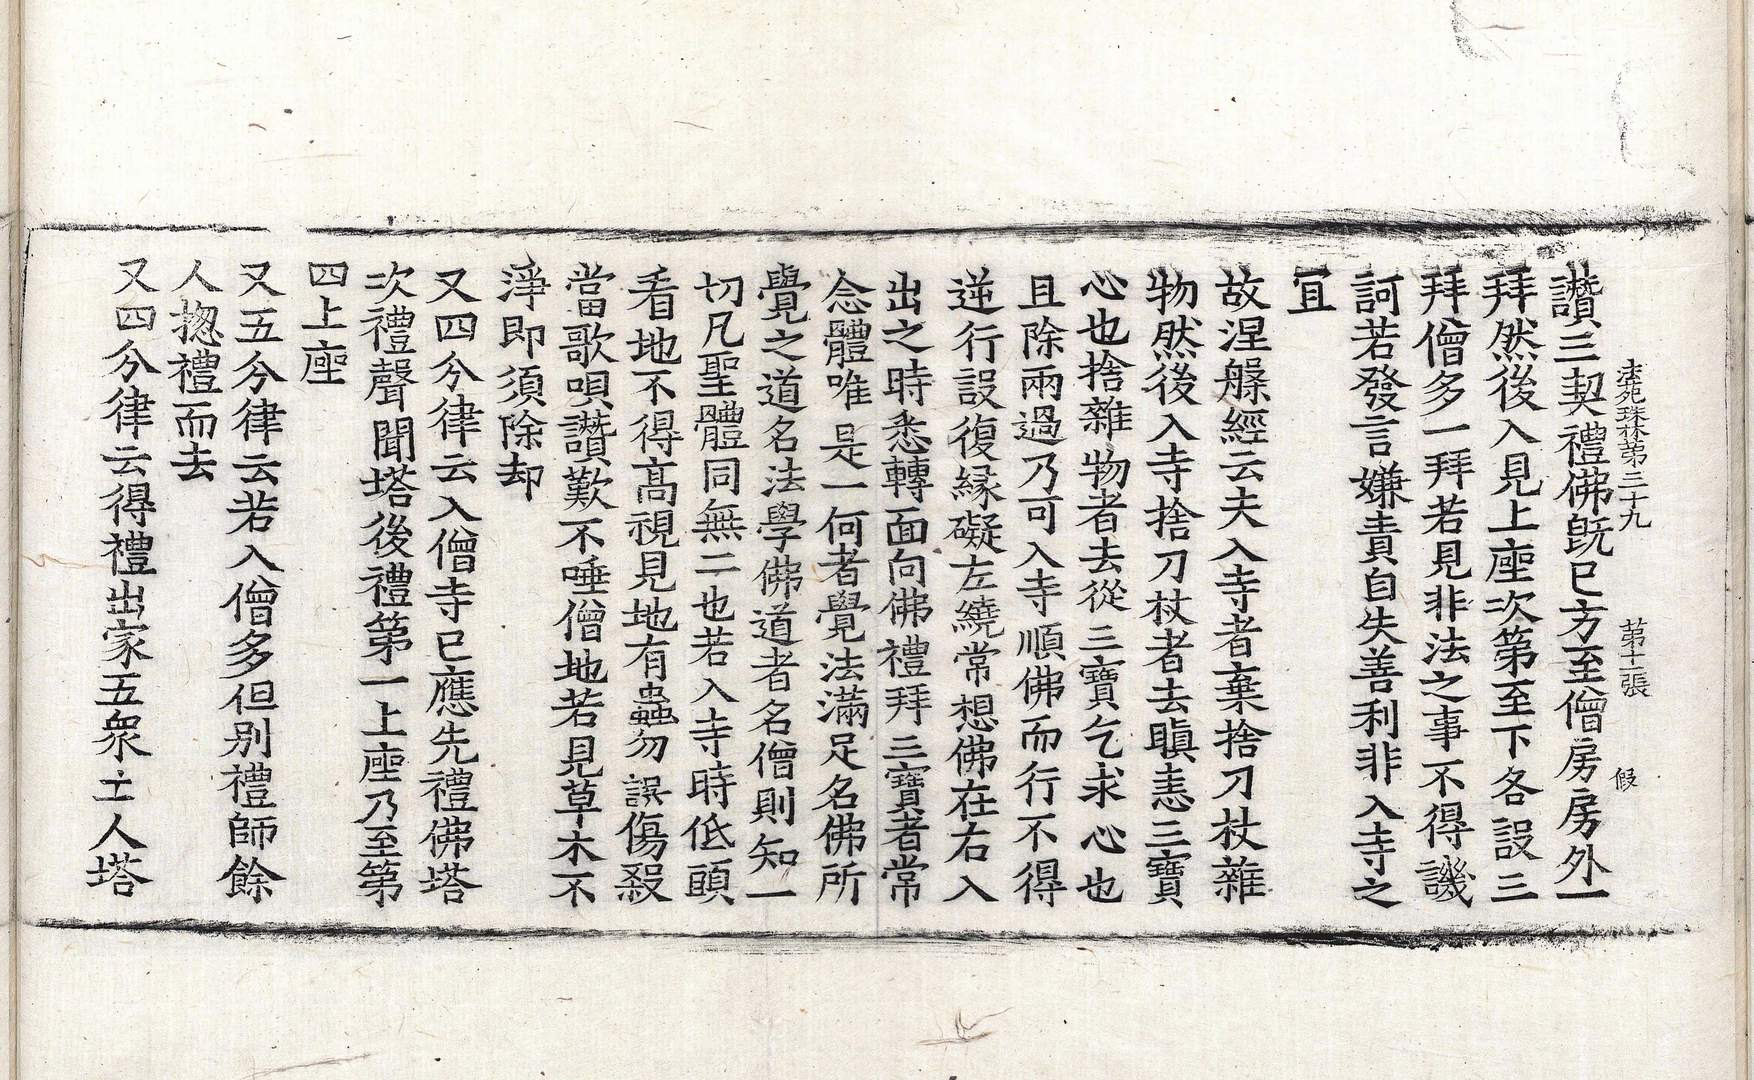 法苑珠林第三十九　第十二張　假
讚三契禮佛旣已方至僧房房外一
拜然後入見上座次第至下各設三
拜僧多一拜若見非法之事不得譏
訶若發言嫌責自失善利非入寺之
冝
故涅槃經云夫入寺者棄捨刀杖雜
物然後入寺捨刀杖者去瞋恚三寶
心也捨雜物者去從三寶乞求心也
且除兩過乃可入寺順佛而行不得
逆行設復緣礙左繞常想佛在右入
出之時悉轉面向佛禮拜三寶者常
念體唯是一何者覺法滿足名佛所
覺之道名法學佛道者名僧則知一
切凡聖體同無二也若入寺時低頭
看地不得高視見地有蟲勿誤傷殺
當歌唄讚歎不唾僧地若見草木不
淨即須除却
又四分律云入僧寺已應先禮佛塔
次禮聲聞塔後禮第一上座乃至第
四上座
又五分律云若入僧多但別禮師餘
人揔禮而去
又四分律云得禮出家五衆士人塔